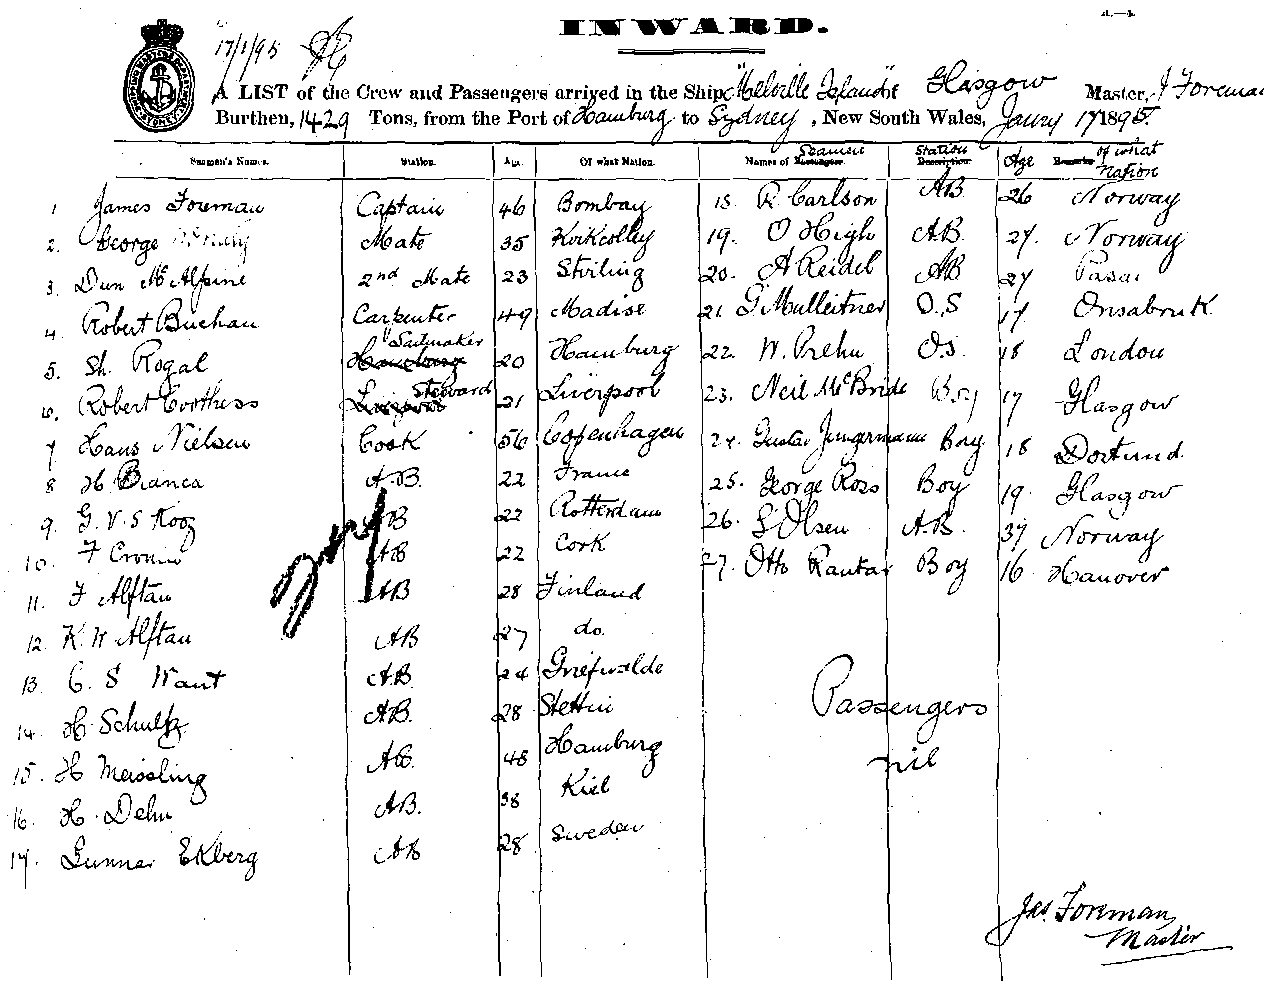 INWARD.
17/1/95
A LIST of the Crew and Passengers arrived in the Ship "Melville Island" of the Glasgow Master, J Foreman
Burthen, 1429 Tons, from the Port of Hamburg to Sydney, New South Wales, Jany 17 1895.
Seamen's Names. Station. Age. Of what Nation. Names of Seamen Station Age of what nation
1 James Foreman Captain 46 Bombay 18. R. Carlson AB 26 Norway
2. George Mate 35 Kirkcolley 19. O High AB. 27. Norway
3. Dun McAlpine 2nd Mate 23 Stirling 20. A Reidel AB 27
4. Robert Buchan Carpenter 49 Madise 21 G Mulleitner O.S 17 Onsabruk
5. Sh. Rogal Sailmaker 20 Hamburg 22. W. Prehn O.S. 18 London
6. Robert Coothess Steward 21 Liverpool 23. Neil McBride Boy 17 Glasgow
7 Hans Nielsen Cook 56 Copenhagen 24. Gustav Jungermann Boy 18 Dortund.
8 H Bianca A.B. 22 France 25. George Ross Boy 19. Glasgow
9. G. V. S Kooz AB 22 Rotterdam 26. S Olsen A.B. 37 Norway
10. F Cronin AB 22 Cork 27. Otto Rantar Boy 16 Hanover
11. F Alftan AB 28 Finland
12. K. W Alftan AB 27 do.
13. C. S Want A.B. 24 Griefwalde
14. H. Schultz A.B. 28 Stettin
15. H Meissling AB. 48 Hamburg
16. H. Dehn AB. 38 Kiel
17. Gunnar Ekberg AB 28 Sweden
Passengers
nil
Jas. Foreman
Master